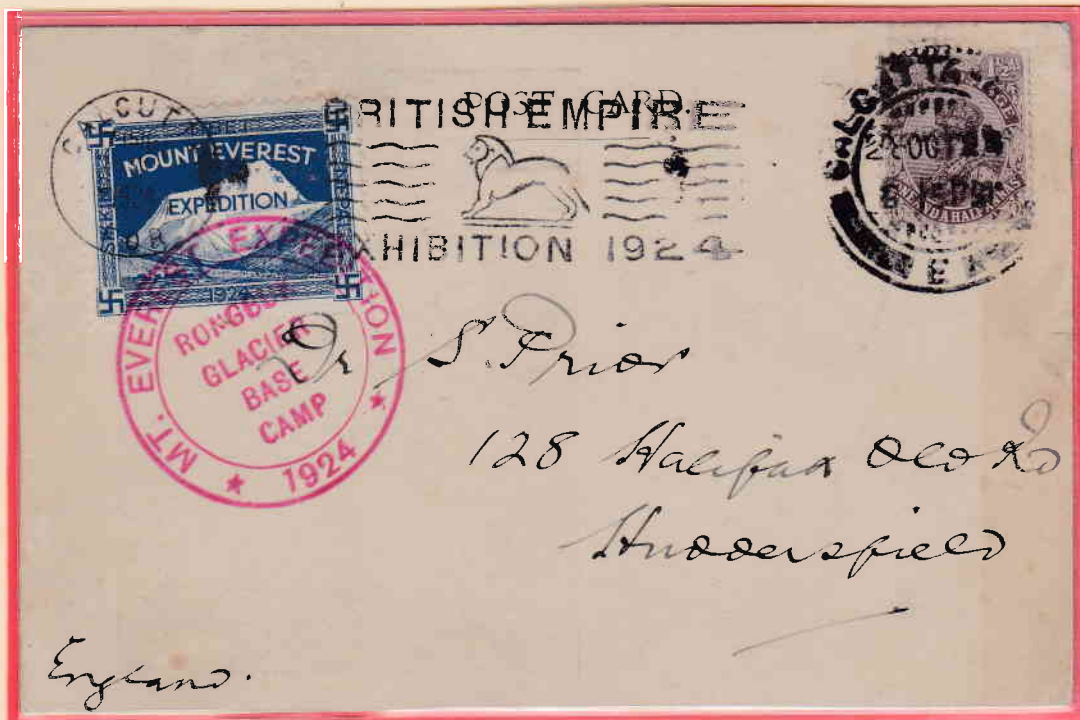 POST CARD.
BRITISH EMPIRE
EXHIBITION 1924
CALCUT
MOUNT EVEREST
EXPEDITION
SIKKIM
NEPAL
1924
MT. EVEREST EXPEDITION
RONGBUK
GLACIER
BASE
CAMP
★ 1924 ★
CALCUTTA
OCT
6 15 PM
Dr S. Prior
128 Halifax Old Rd
Huddersfield
England.